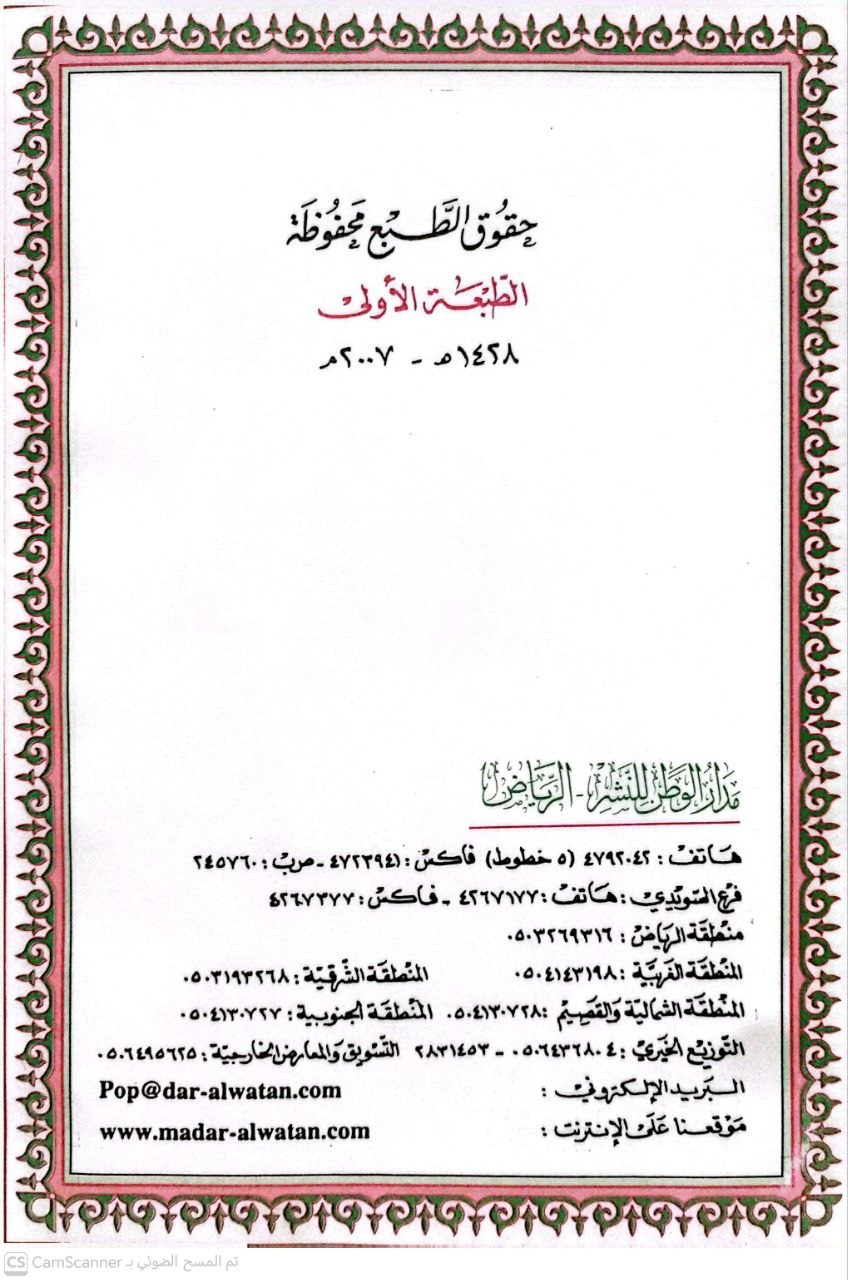 حقوق الطبع محفوظة
الطبعة الأولى
١٤٢٨هـ - ٢٠٠٧م
مدار الوطن للنشر - الرياض
هاتف : ٤٧٩٢٠٤٢ (٥ خطوط) فاكس : ٤٧٢٣٩٤١ - ص ب : ٢٤٥٧٦٠
فرع السويدي : هاتف : ٤٢٦٧١٧٧ - فاكس : ٤٢٦٧٣٧٧
منطقة الرياض : ٠٥٠٣٢٦٩٣١٦
المنطقة الغربية : ٠٥٠٤١٤٣١٩٨ المنطقة الشرقية : ٠٥٠٣١٩٣٢٦٨
المنطقة الشمالية والقصيم : ٠٥٠٤١٣٠٧٢٨ المنطقة الجنوبية : ٠٥٠٤١٣٠٧٢٧
التوزيع الخيري : ٠٥٠٦٤٣٦٨٠٤ - ٢٨٣١٤٥٣ التسويق والمعارض الخارجية : ٠٥٠٦٤٩٥٦٢٥
البريد الإلكتروني : Pop@dar-alwatan.com
موقعنا على الإنترنت : www.madar-alwatan.com
CS CamScanner تم المسح الضوئي بـ